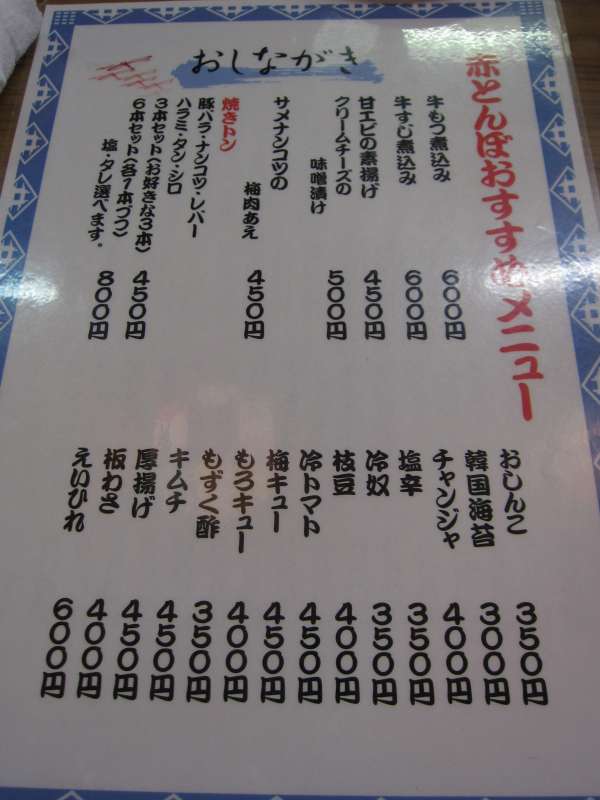 おしながき
赤とんぼおすすめメニュー
牛もつ煮込み 600円
牛すじ煮込み 600円
甘エビの素揚げ 450円
クリームチーズの
味噌漬け 500円
サメナンコツの
梅肉あえ 450円
焼きトン
豚バラ・ナンコツ・レバー
ハラミ・タン・シロ
3本セット(お好きな3本) 450円
6本セット(各1本づつ) 800円
塩・タレ選べます。
おしんこ 350円
韓国海苔 300円
チャンジャ 400円
塩辛 350円
冷奴 350円
枝豆 400円
冷トマト 450円
梅キュー 450円
もろキュー 400円
もずく酢 350円
キムチ 450円
厚揚げ 450円
板わさ 400円
えいひれ 600円